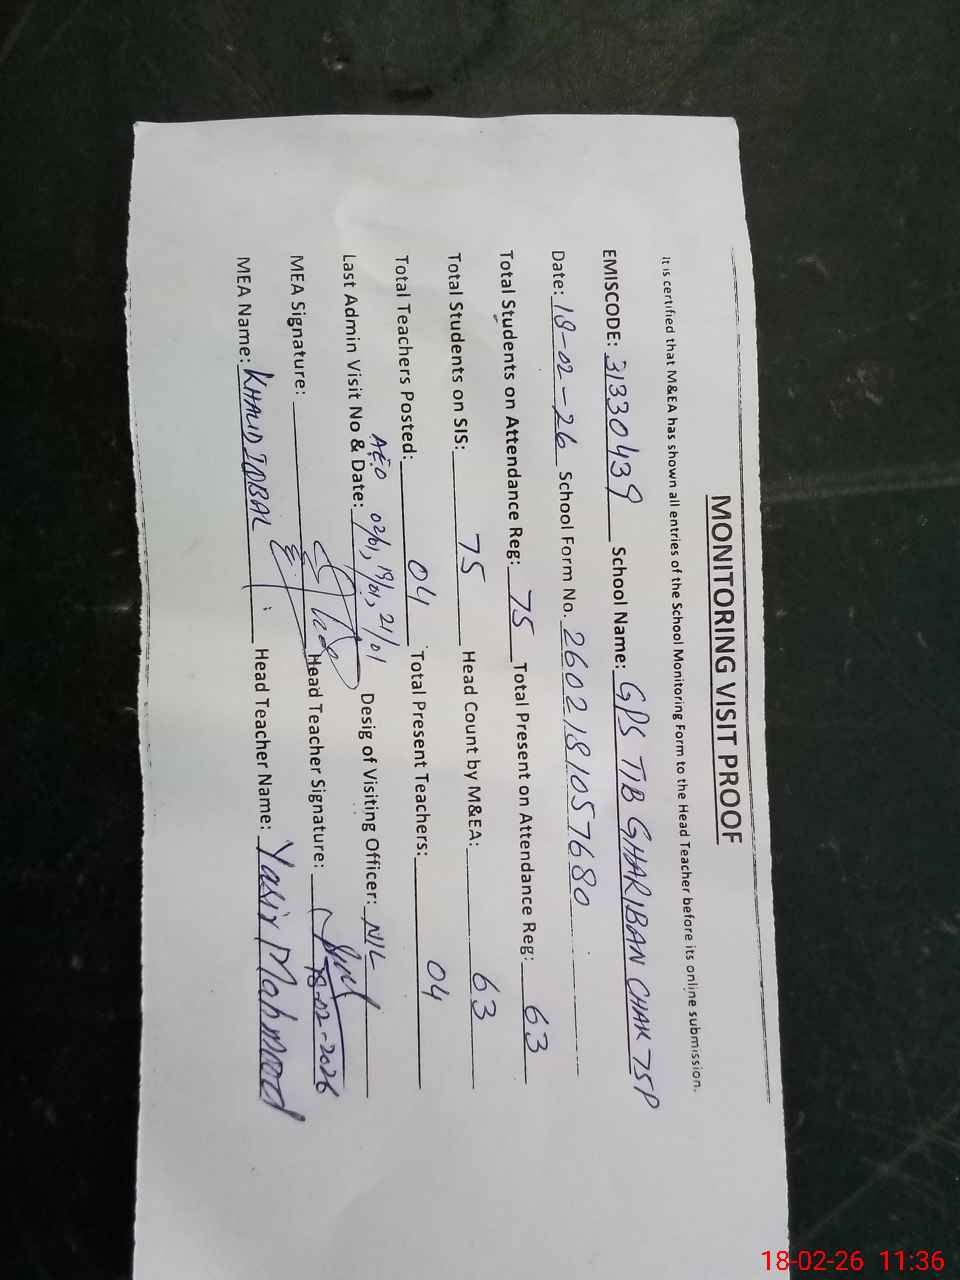 MONITORING VISIT PROOF
It is certified that M&EA has shown all entries of the School Monitoring Form to the Head Teacher before its online submission.
EMISCODE: 31330439 School Name: GPS TIB GHARIBAN CHAK 75P
Date: 18-02-26 School Form No. 2602181057680
Total Students on Attendance Reg: 75 Total Present on Attendance Reg: 63
Total Students on SIS: 75 Head Count by M&EA: 63
Total Teachers Posted: 04 Total Present Teachers: 04
AEO 02/01, 19/01, 21/01
Last Admin Visit No & Date: Desig of Visiting Officer: NIL
MEA Signature: Head Teacher Signature: 18-02-2026
MEA Name: KHALID IQBAL Head Teacher Name: Yasir Mahmood
18-02-26 11:36